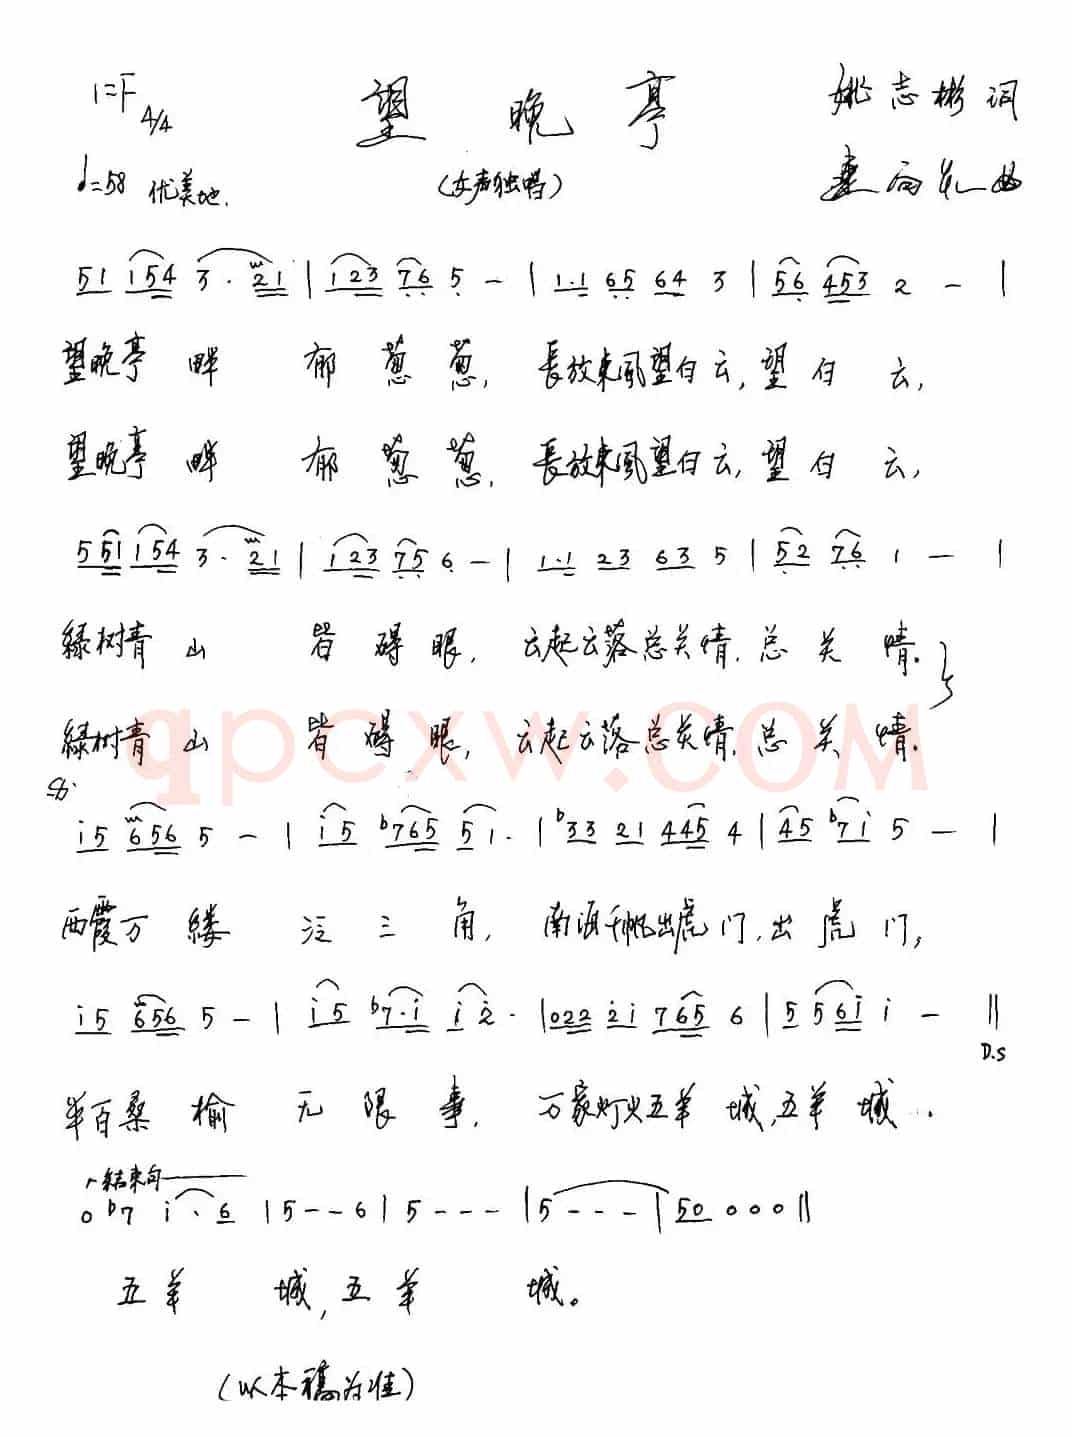 1=F 4/4 望晚亭 姚志彬词
♩=58 优美地. (女声独唱) 曲
51 154 3·21 | 123 76 5 - | 1·1 65 64 3 | 56 453 2 - |
望晚亭畔 郁葱葱, 長放東風望白云, 望白云,
望晚亭畔 郁葱葱, 長放東風望白云, 望白云,
551 154 3·21 | 123 75 6 - | 1·1 23 63 5 | 52 76 1 - |
緑树青山 皆碍眼, 云起云落总关情, 总关情.
緑树青山 皆碍眼, 云起云落总关情, 总关情.
qpcxw.COM
i5 656 5 - | i5 b765 51· | b33 21 445 4 | 45 b7i 5 - |
西霞万缕 泛三角, 南海千帆出虎门, 出虎门;
i5 656 5 - | i5 b7·i i2· | 022 2i 765 6 | 5 56i i - ‖
D.S
半百桑榆 无限事, 万家灯火五羊城, 五羊城.
结束句
0 b7 i·6 | 5--6 | 5--- | 5--- | 50 000 ‖
五羊城, 五羊城。
(以本稿为准)